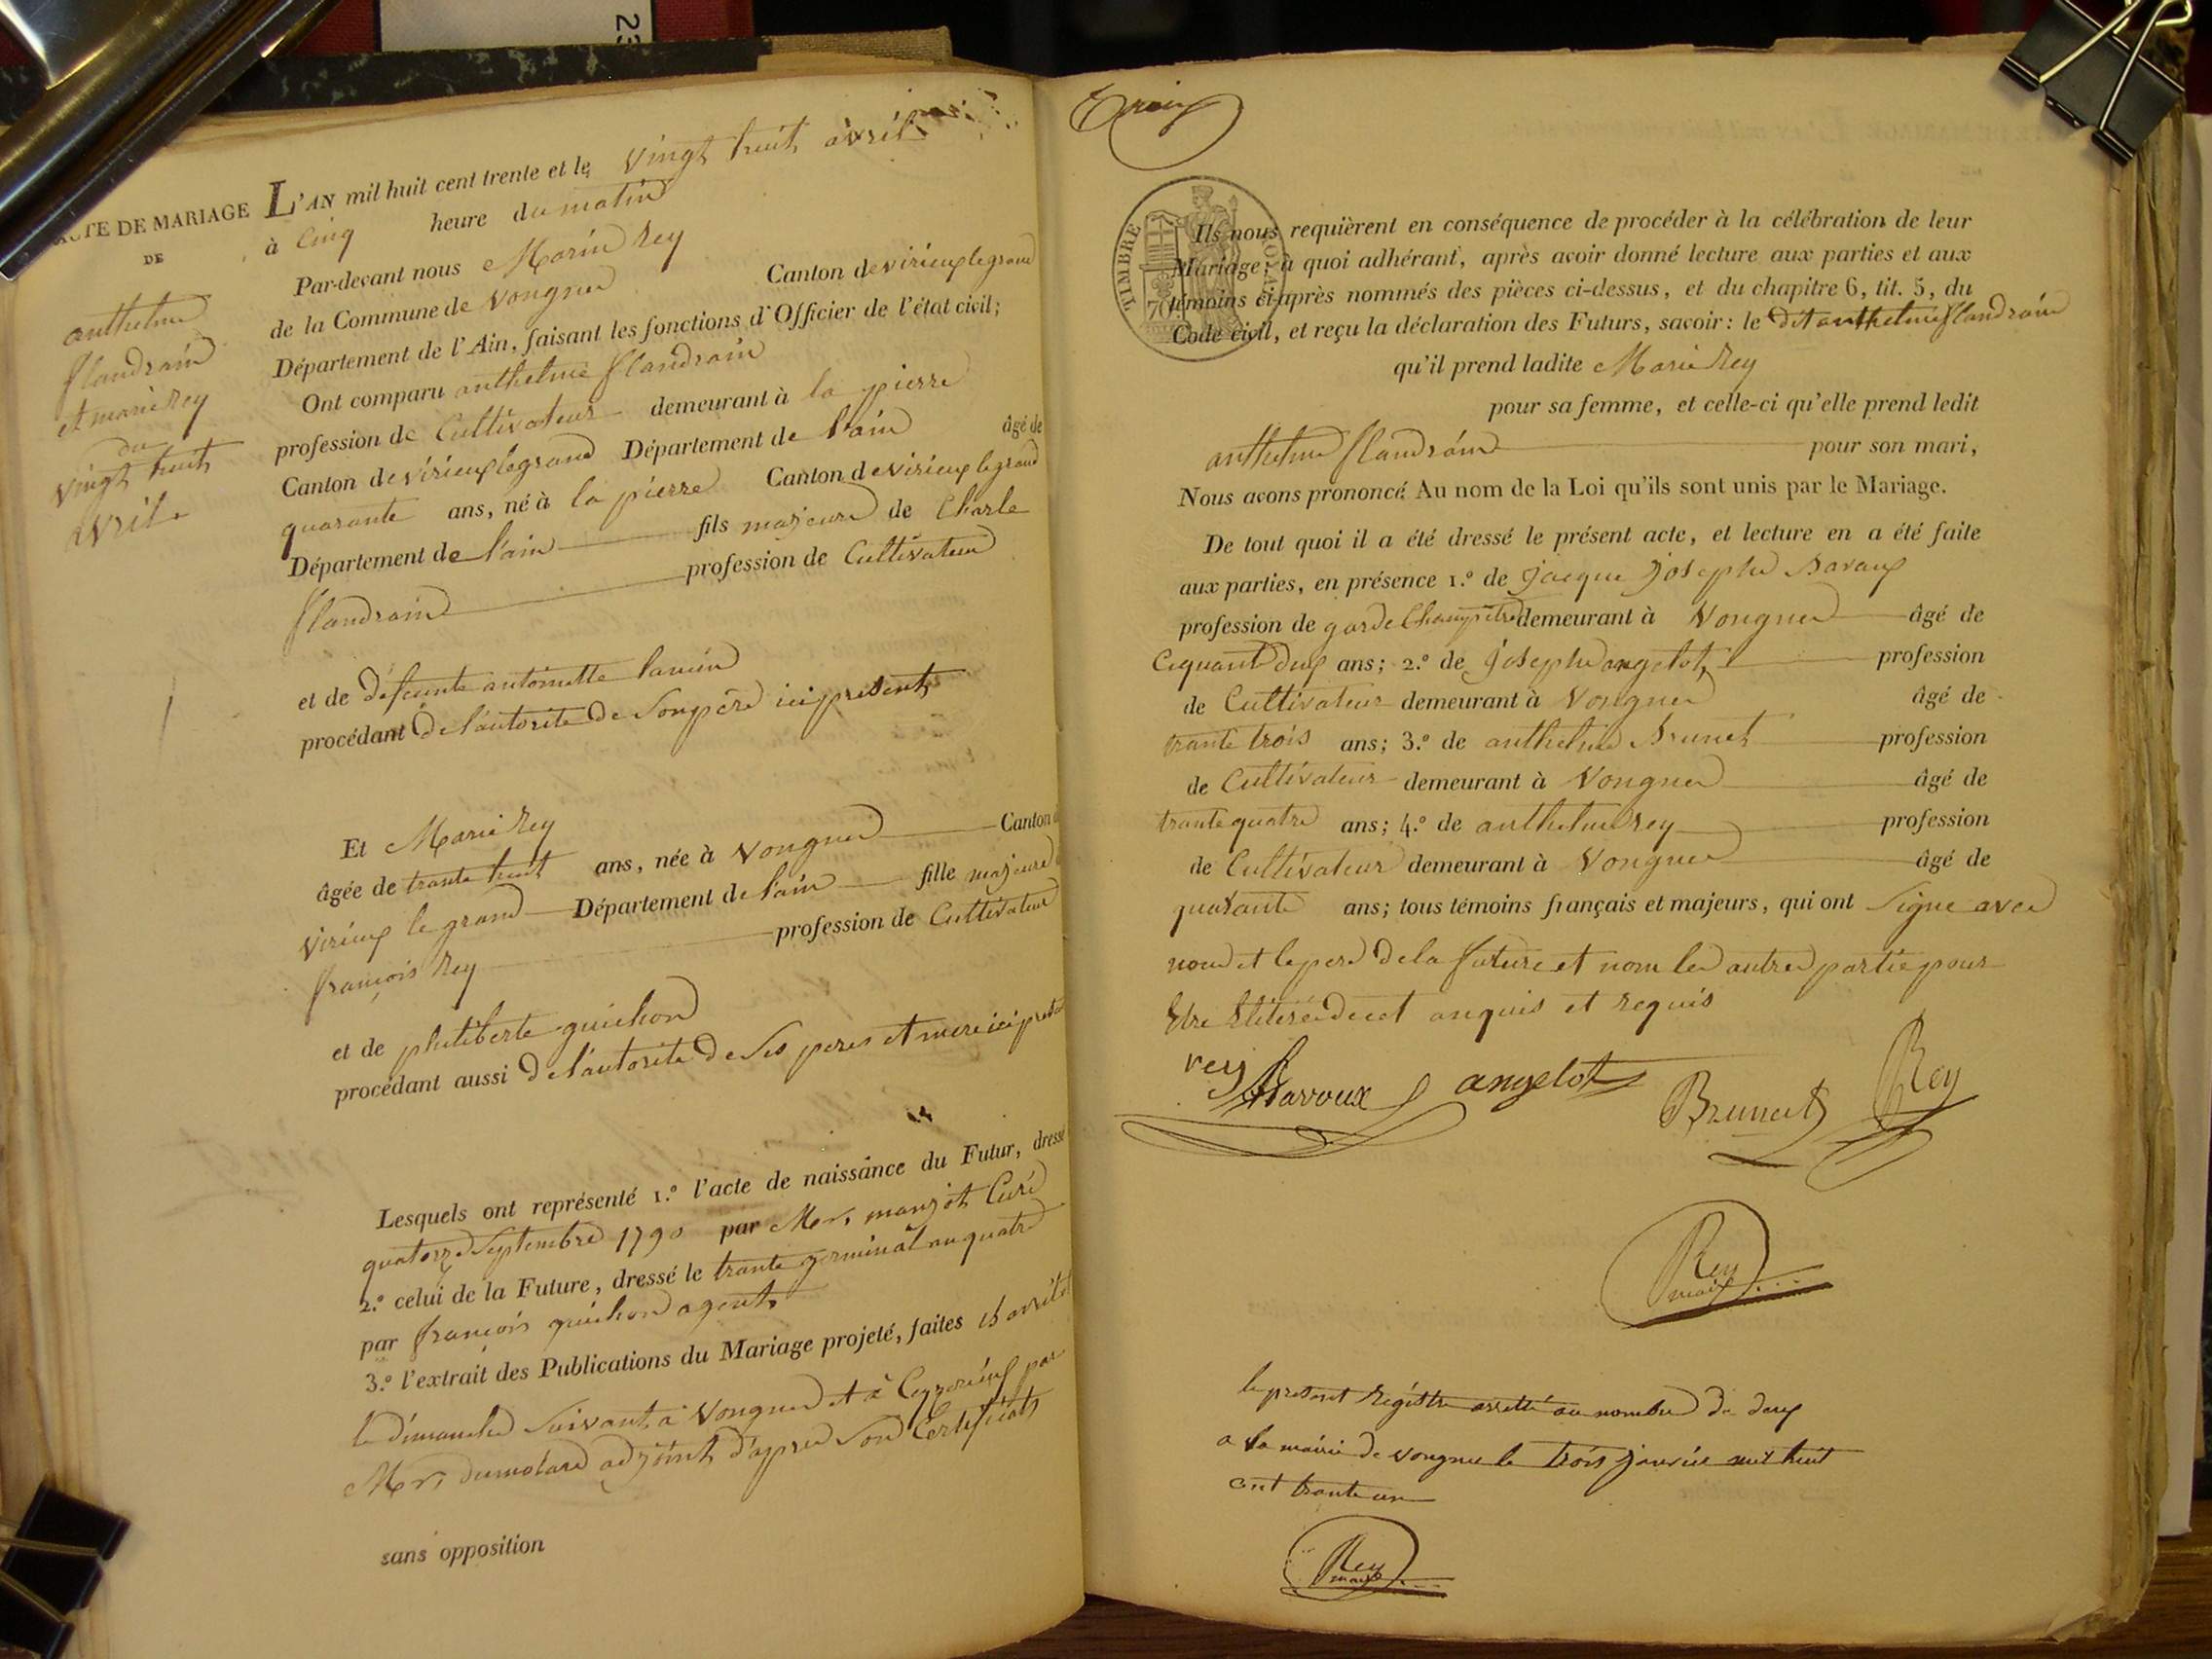 23
ACTE DE MARIAGE
DE
anthelme
flandrain
et marie Rey
du
vingt huit
avril
L'AN mil huit cent trente et le vingt huit avril
à cinq heure du matin
Par-devant nous Marin Rey
de la Commune de vongne Canton de virieux le grand
Département de l'Ain, faisant les fonctions d'Officier de l'état civil;
Ont comparu anthelme flandrain
profession de Cultivateur demeurant à la pierre
Canton de virieux le grand Département de l'ain âgé de
quarante ans, né à la pierre Canton de virieux le grand
Département de l'ain fils majeure de Charle
flandrain profession de Cultivateur
et de défeunte antoinette
procédant de l'autorité de son père ici present
Et Marie Rey
âgée de trante huit ans, née à vongne Canton
virieux le grand Département de l'ain fille majeure
françois Rey profession de Cultivateur
et de philiberte guichon
procédant aussi de l'autorité de ses peres et mere ici
Lesquels ont représenté 1.º l'acte de naissance du Futur, dressé
quatorze Septembre 1790 par Mr. Curé
2.º celui de la Future, dressé le trante germinal an quatre
par françois guichon agent
3.º l'extrait des Publications du Mariage projeté, faites
le dimanche suivant à vongne et à Ceyzerieux par
Mr. dumolard adjoint d'apres son Certificat
sans opposition
TIMBRE ROYAL
70
Ils nous requièrent en conséquence de procéder à la célébration de leur
Mariage; à quoi adhérant, après avoir donné lecture aux parties et aux
témoins ci-après nommés des pièces ci-dessus, et du chapitre 6, tit. 5, du
Code civil, et reçu la déclaration des Futurs, savoir: le dit anthelme flandrain
qu'il prend ladite Marie Rey
pour sa femme, et celle-ci qu'elle prend ledit
anthelme flandrain pour son mari,
Nous avons prononcé Au nom de la Loi qu'ils sont unis par le Mariage.
De tout quoi il a été dressé le présent acte, et lecture en a été faite
aux parties, en présence 1.º de Jacque Josephe
profession de garde Champetre demeurant à Vongne âgé de
ciquante deux ans; 2.º de Josephe angelot profession
de Cultivateur demeurant à Vongne âgé de
trante trois ans; 3.º de anthelme Brunet profession
de Cultivateur demeurant à Vongne âgé de
trante quatre ans; 4.º de anthelme Rey profession
de Cultivateur demeurant à Vongne âgé de
quarante ans; tous témoins français et majeurs, qui ont signe avec
nous et le pere de la future et nom les autre partie pour
être de cet anquis et requis
rey angelot Brunet Rey
Rey
maire
le present Régistre arretté au nombre de deux
a la mairie de vongne le trois janvier mil huit
cent trante un
Rey
maire